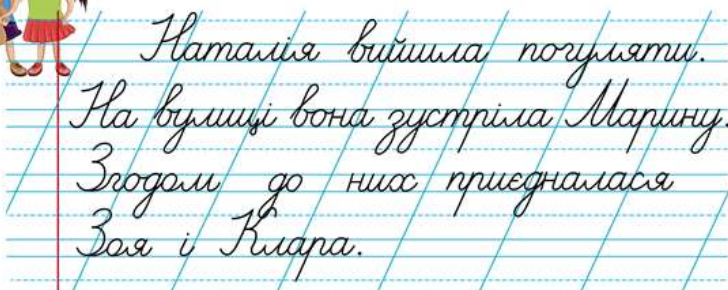 Наталія вийшла погуляти.
На вулиці вона зустріла Марину.
Згодом до них приєдналася
Зоя і Клара.